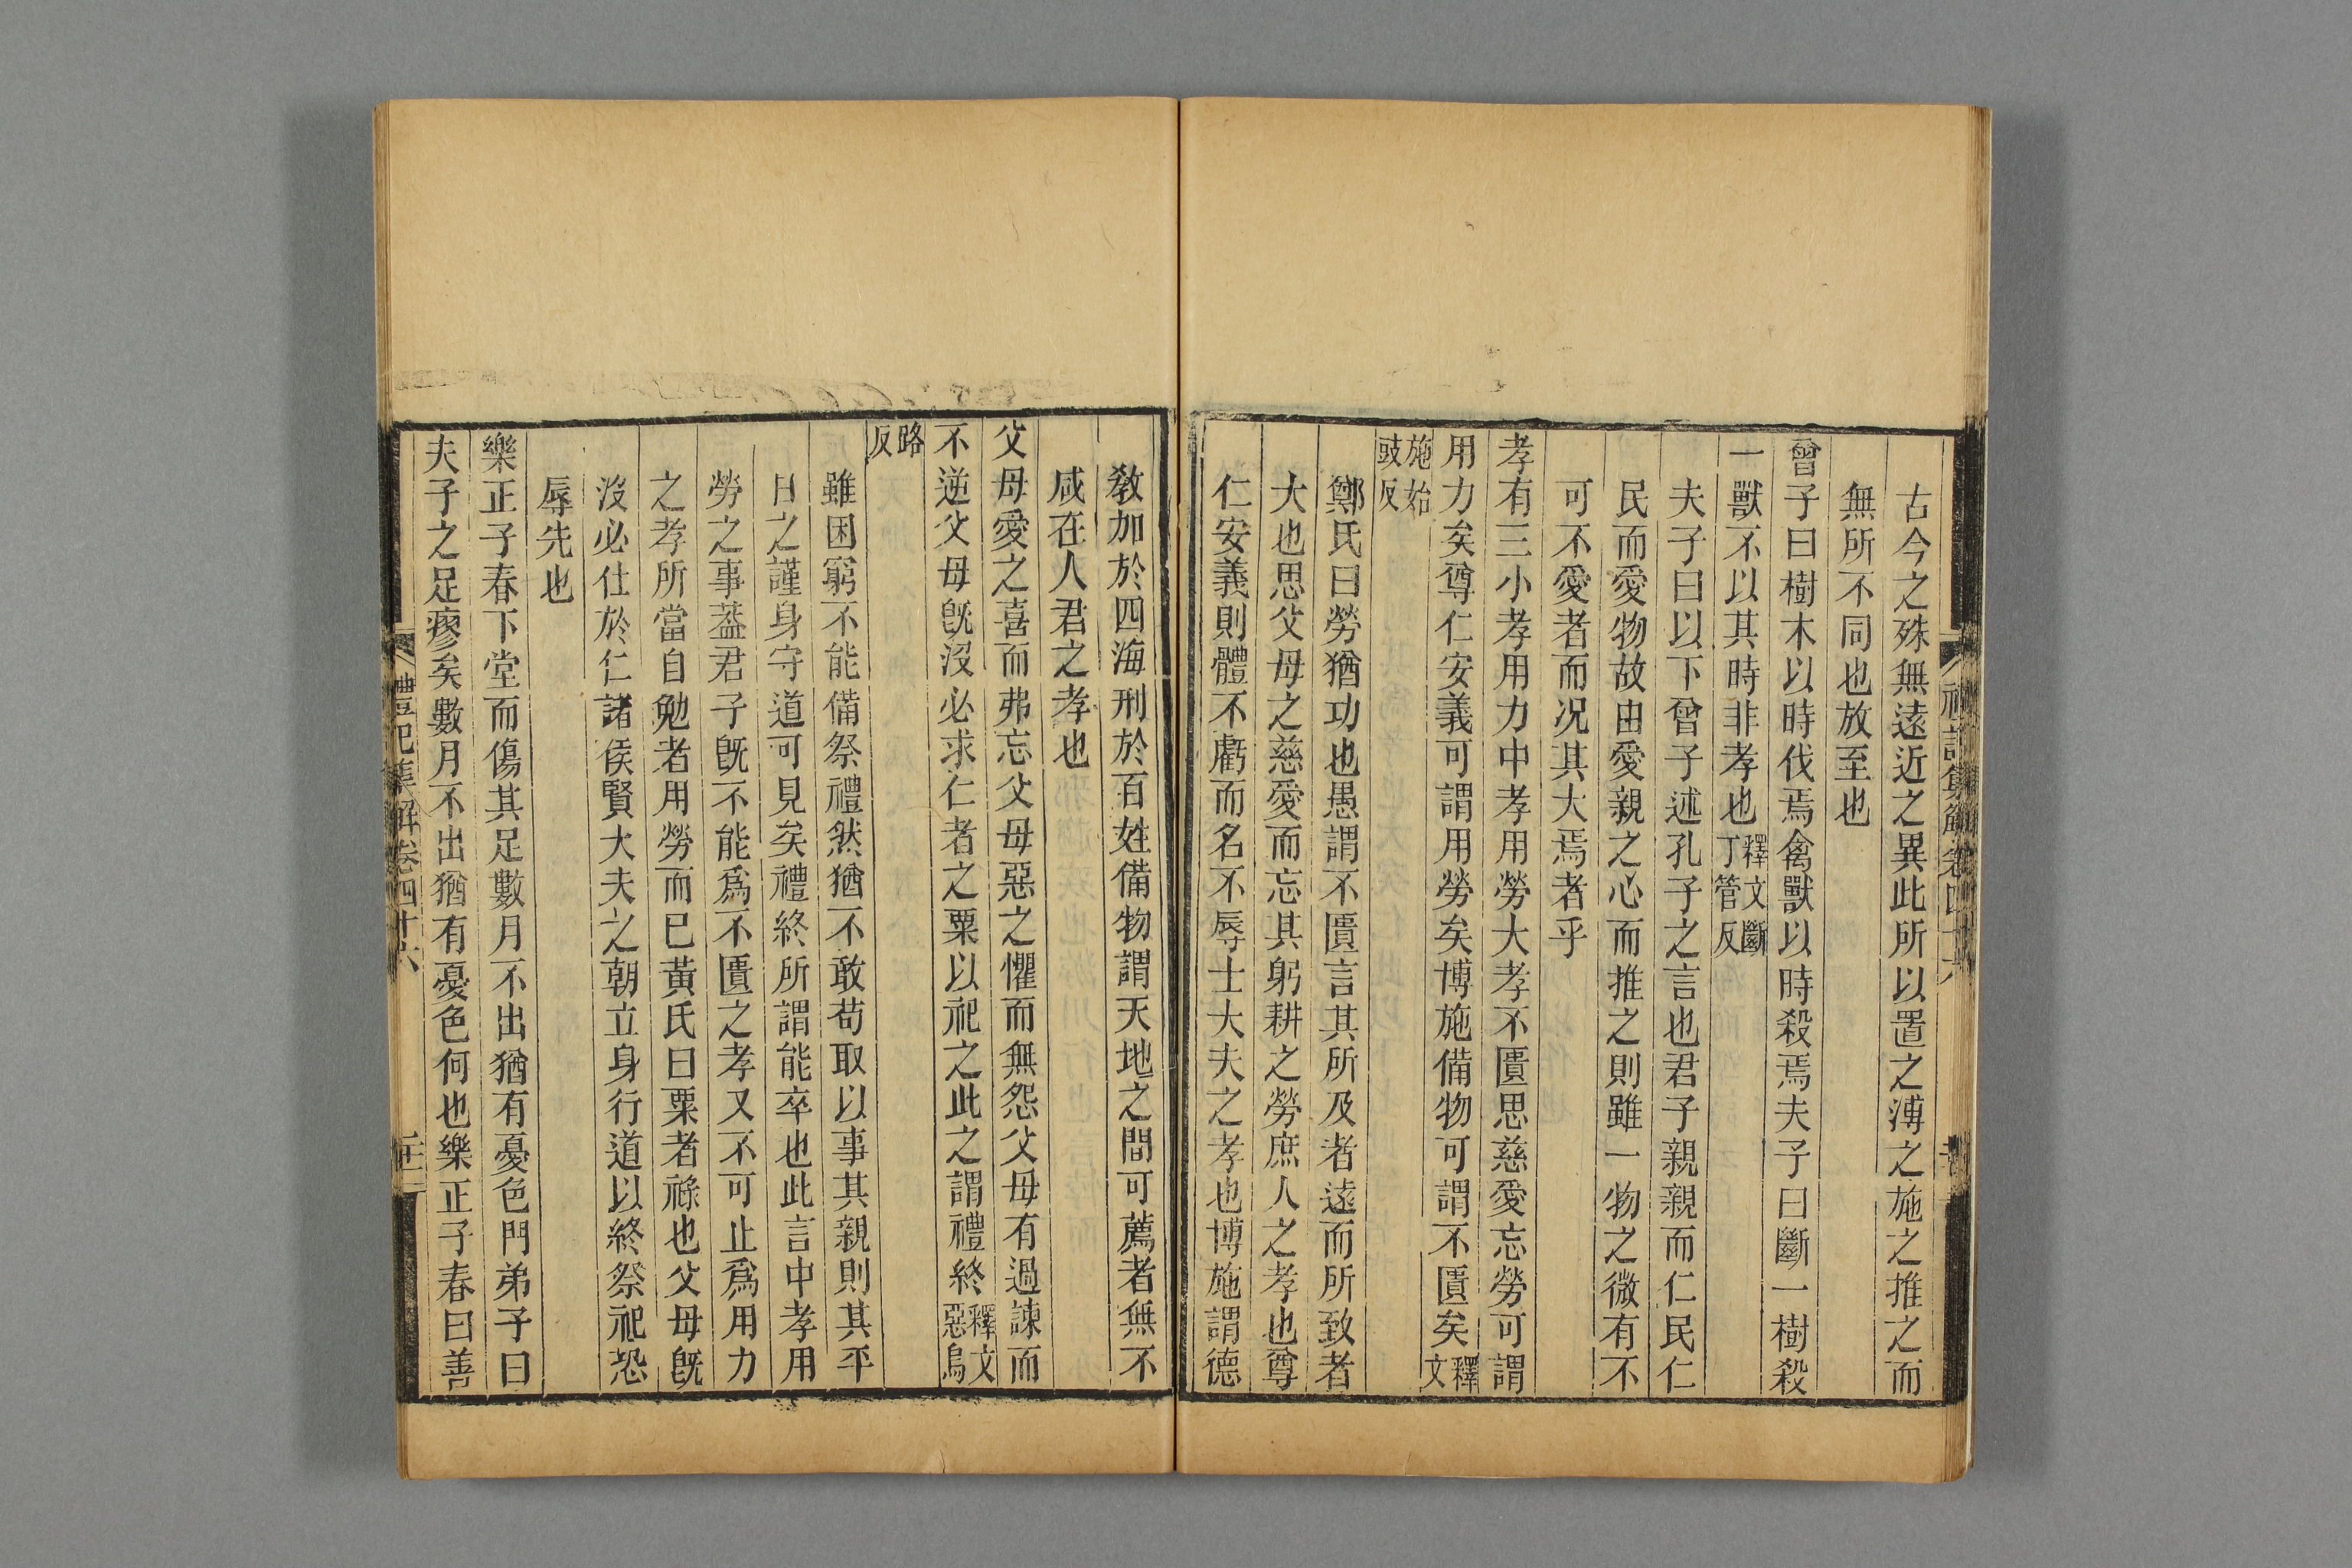 古今之殊無遠近之異此所以置之溥之施之推之而
無所不同也放至也
曾子曰樹木以時伐焉禽獸以時殺焉夫子曰斷一樹殺
一獸不以其時非孝也釋文斷丁管反
夫子曰以下曾子述孔子之言也君子親親而仁民仁
民而愛物故由愛親之心而推之則雖一物之微有不
可不愛者而况其大焉者乎
孝有三小孝用力中孝用勞大孝不匱思慈愛忘勞可謂
用力矣尊仁安義可謂用勞矣博施備物可謂不匱矣釋文
施始豉反
鄭氏曰勞猶功也愚謂不匱言其所及者遠而所致者
大也思父母之慈愛而忘其躬耕之勞庶人之孝也尊
仁安義則體不虧而名不辱士大夫之孝也博施謂德
敎加於四海刑於百姓備物謂天地之間可薦者無不
咸在人君之孝也
父母愛之喜而弗忘父母惡之懼而無怨父母有過諫而
不逆父母旣沒必求仁者之粟以祀之此之謂禮終釋文惡烏
路反
雖困窮不能備祭禮然猶不敢苟取以事其親則其平
日之謹身守道可見矣禮終所謂能卒也此言中孝用
勞之事葢君子旣不能爲不匱之孝又不可止爲用力
之孝所當自勉者用勞而已黃氏曰粟者祿也父母旣
沒必仕於仁諸侯賢大夫之朝立身行道以終祭祀恐
辱先也
樂正子春下堂而傷其足數月不出猶有憂色門弟子曰
夫子之足瘳矣數月不出猶有憂色何也樂正子春曰善
禮記集解卷四十六